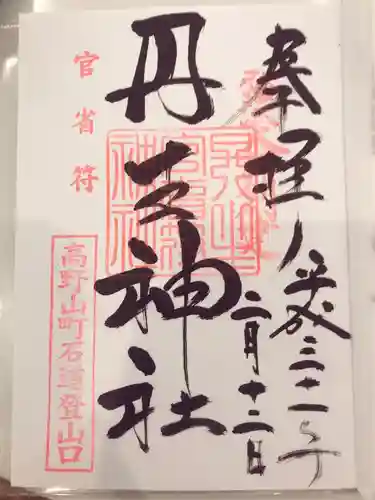 奉拝
平成三十一年
二月十二日
丹生神社
官省符
高野山町石道登山口